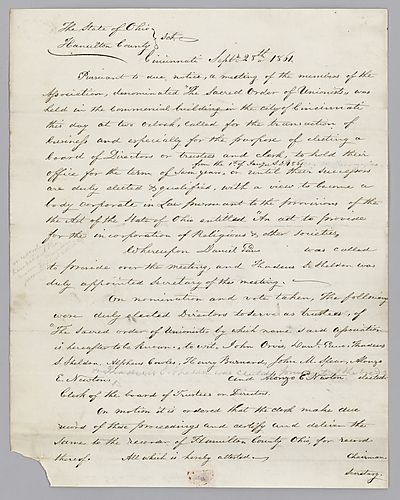 The State of Ohio
Hamilton County } Sct.
Cincinnati Sept. 28th 1851.
Pursuant to due notice, a meeting of the members of the
Association, denominated The Sacred Order of Unionists, was
held in the Commercial building in the City of Cincinnati
this day at two oclock, called for the transaction of
business and especially for the purpose of electing a
board of Directors or trustees and clerk, to hold their
office for the term of years, or until their successors
are duly elected & qualified, with a view to become a
body corporate in Law pursuant to the provisions of the
the Act of the State of Ohio entitled An act to provide
for the incorporation of Religious & other Societies
Whereupon Daniel was called
to preside over the meeting, and Thadeus S. Sheldon was
duly appointed Secretary of this meeting.
On nomination and vote taken, The following
were duly elected Directors to serve as trustees, of
"The Sacred order of Unionists by which name said association
is hereafter to be known, to wit, John Orvis, Danl. Thadeus
S Sheldon, Alpheus Cowles, Henry Barnard, John M. Spear, Alonzo
E. Newton. And Alonzo E Newton elected
Clerk of the board of Trustees or Directors.
On motion it is ordered that the clerk make due
record of these proceedings and certify and deliver the
same to the recorder of Hamilton County Ohio, for record
thereof. All which is hereby attested. Chairman
Secretary.